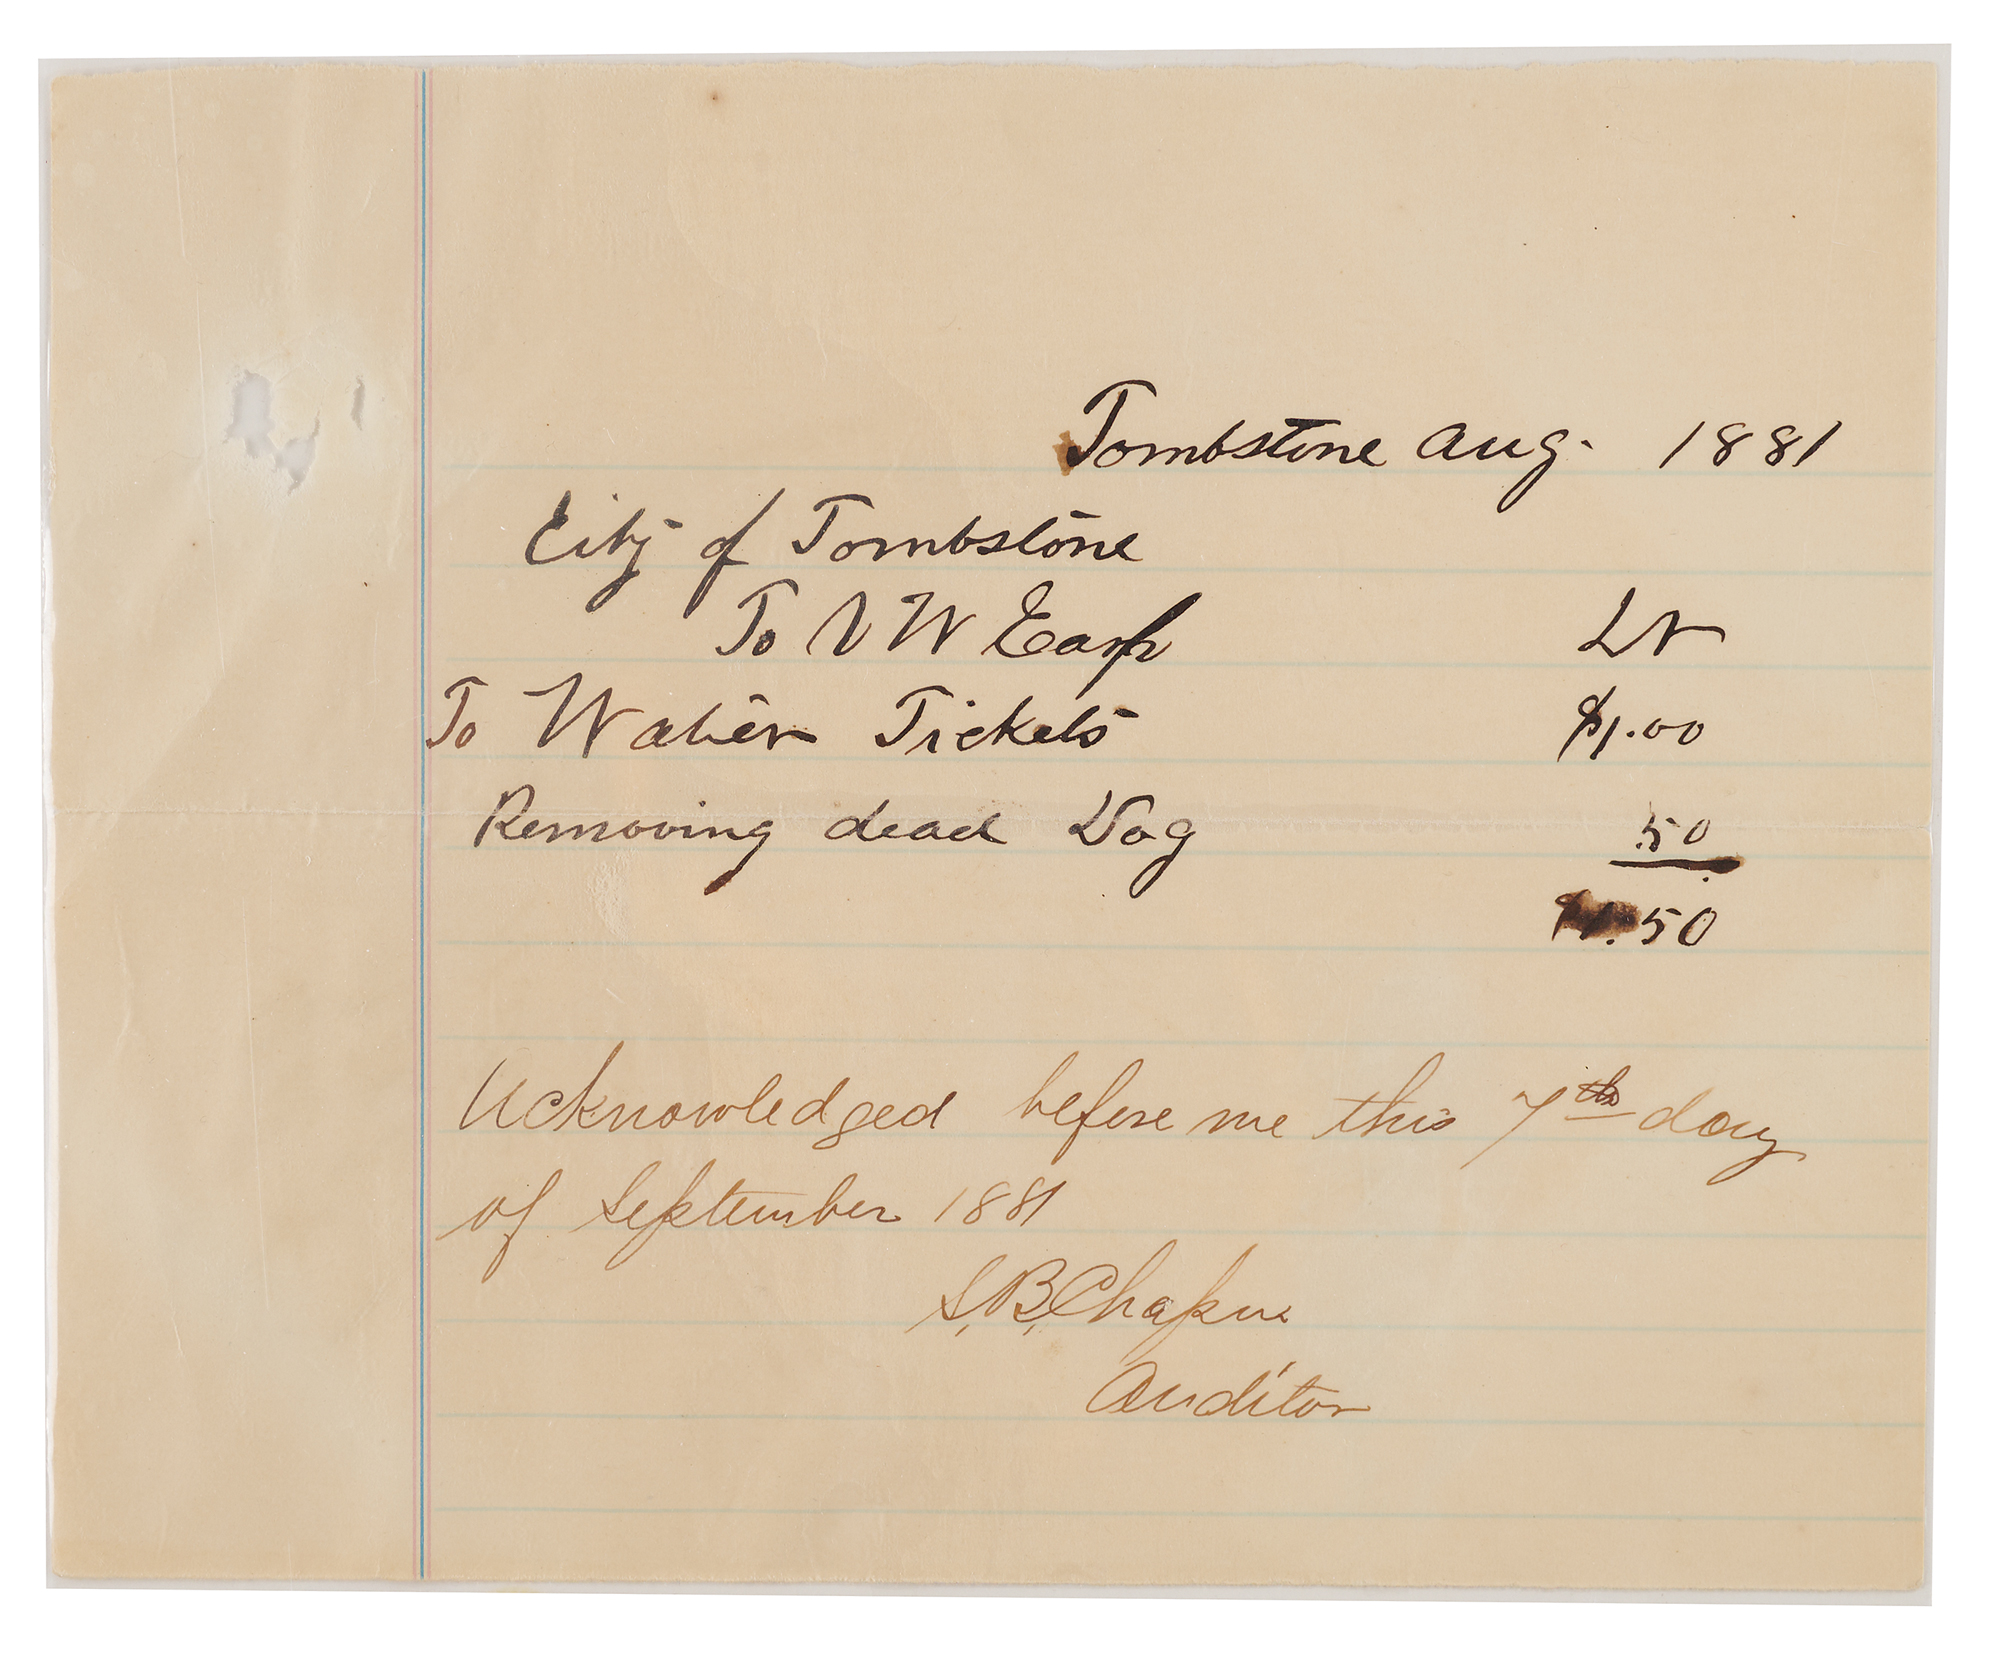 Tombstone Aug. 1881
City of Tombstone
To V W Earp Dr
To Water Tickets $1.00
Removing dead Dog .50
$1.50
Acknowledged before me this 7th day
of September 1881
S, B, Chapin
Auditor